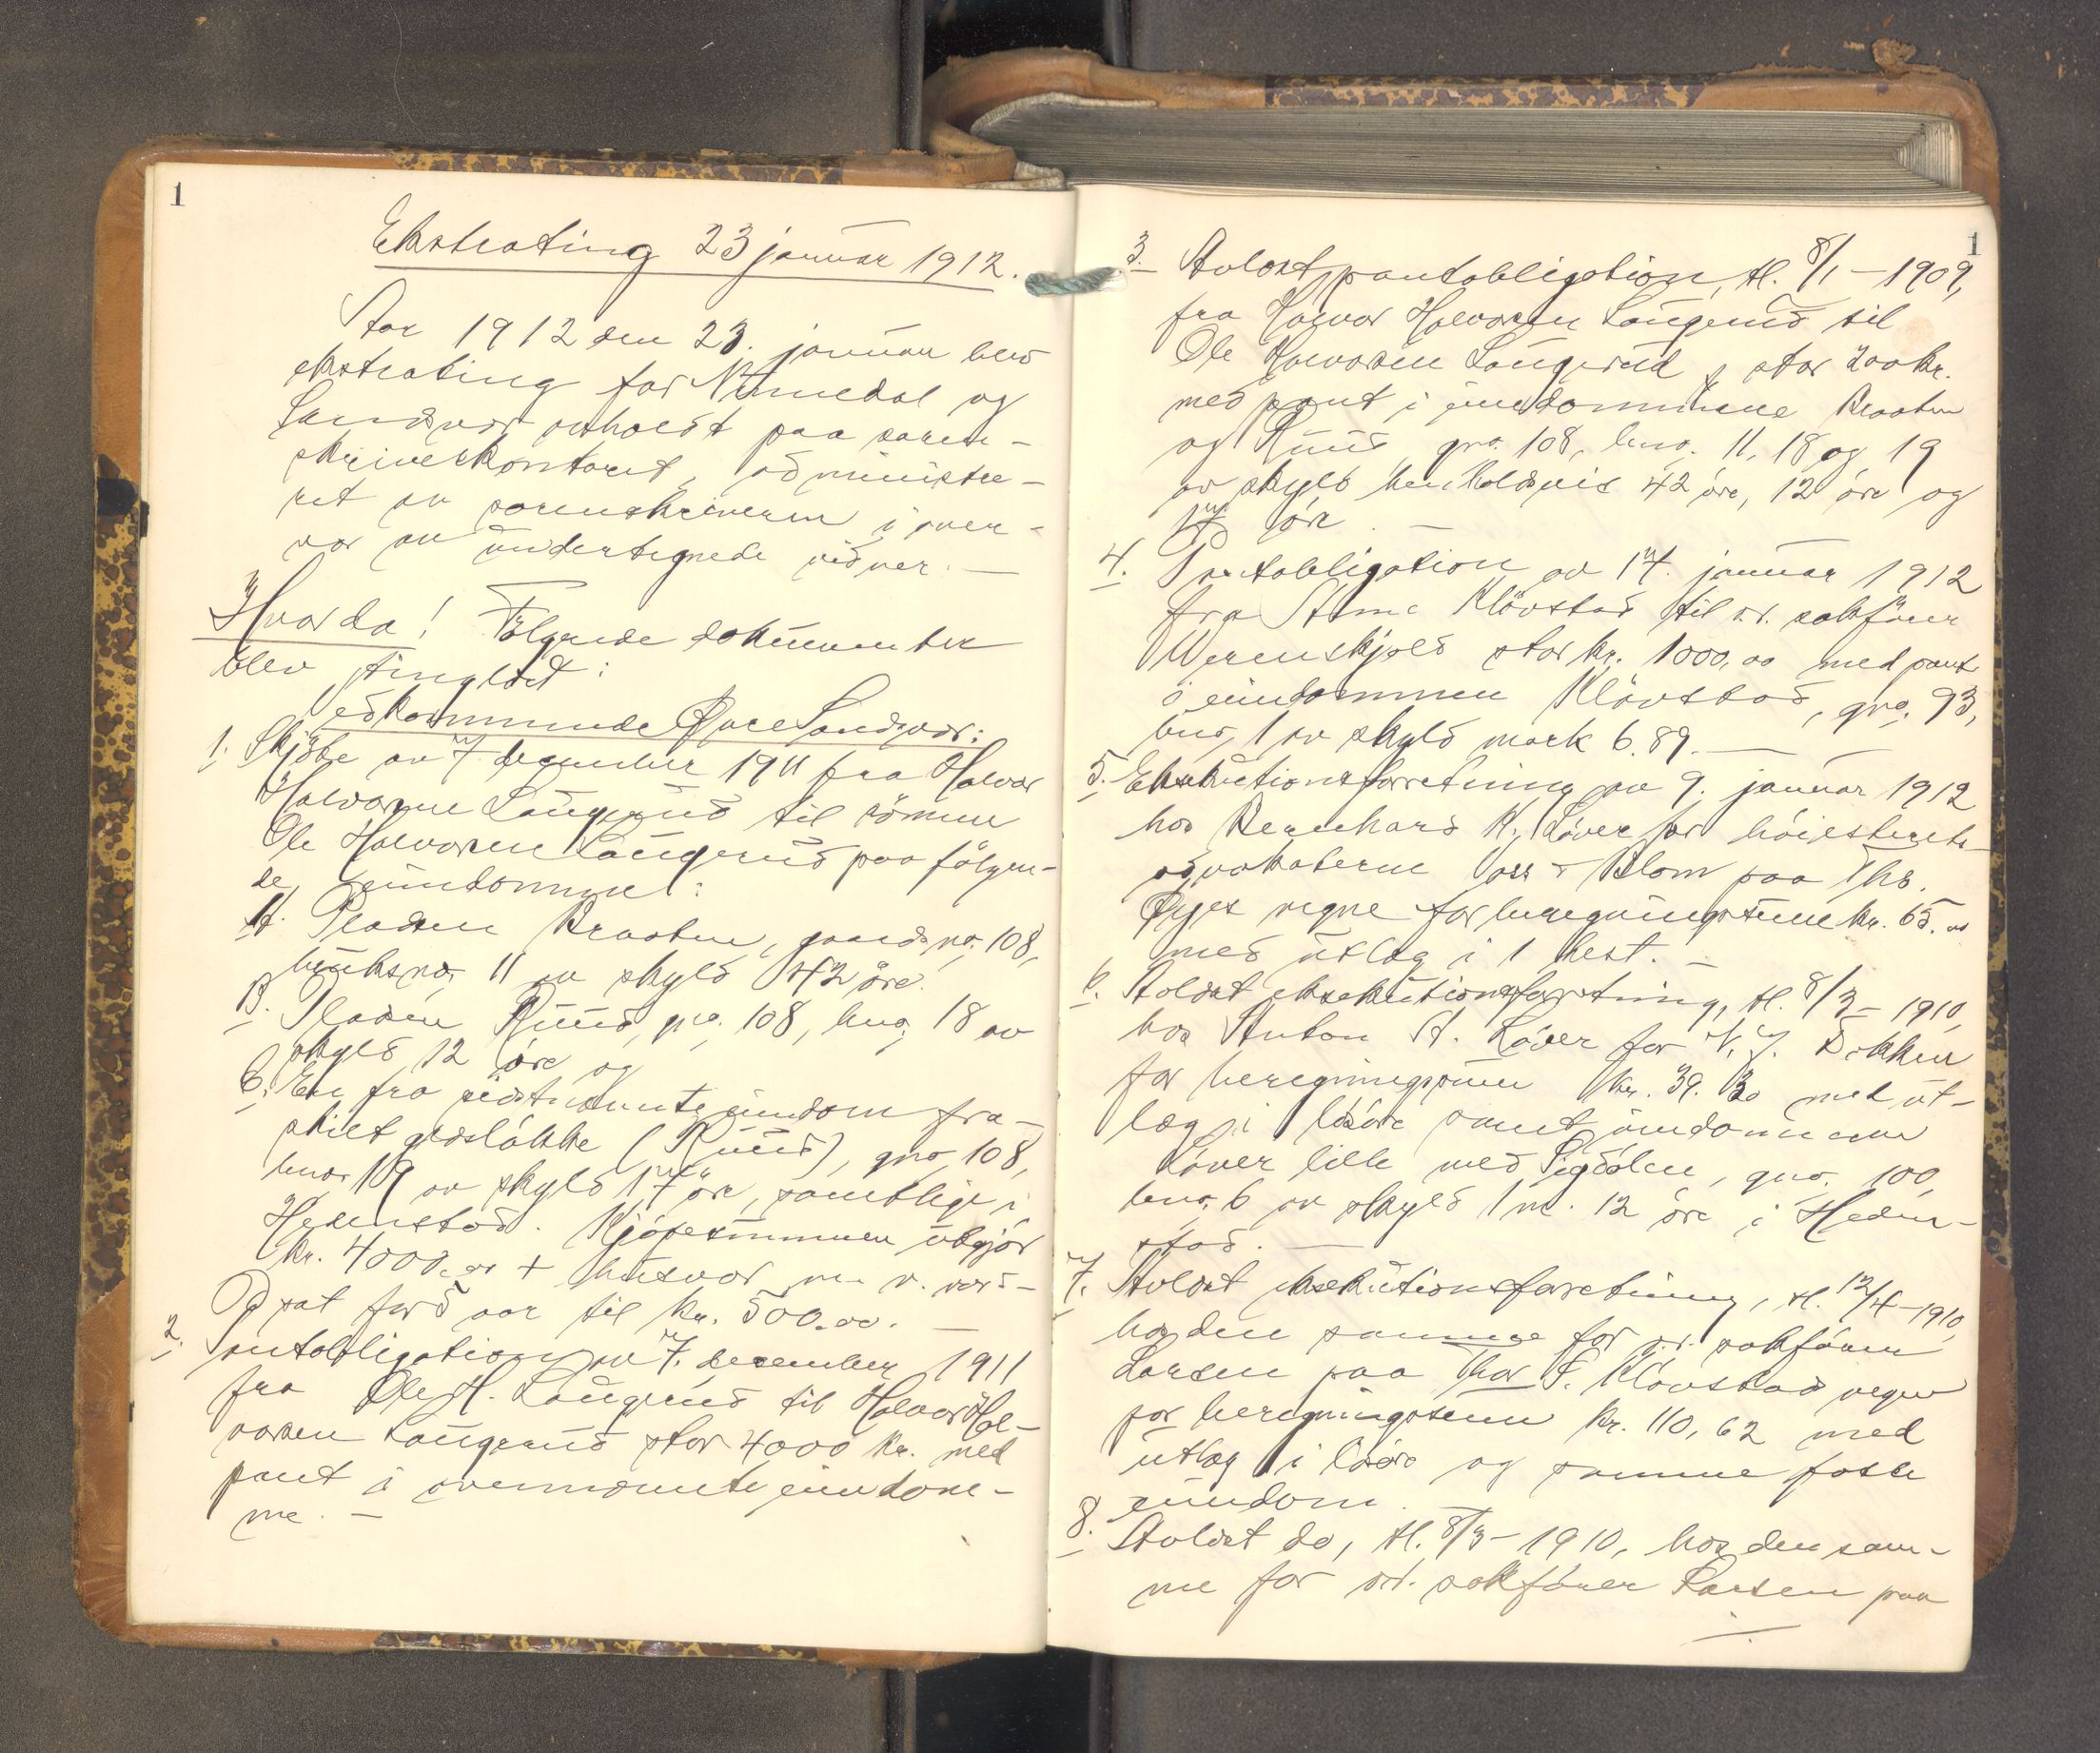 1
Ekstrating 23 januar 1912.
Aar 1912 den 23. januar blev
ekstrating for Numedal og
Sandsvær avholdt paa soren-
skriverkontoret, administre-
ret av sorenskriveren i over-
vær av undertegnede vidner. —
Hvorda! Følgende dokumenter
blev tinglæst:
vedkommende Øvre Sandsvær:
1. Skjøte av 7 december 1911 fra Halvor
Halvorsen Laugerud til sønnen
Ole Halvorsen Laugerud paa følgen-
de eiendomme:
A. Pladsen Braaten, gaardsno. 108,
bruksno. 11 av skyld 42 øre.
B. Pladsen Ruud, gno. 108, bno. 18 av
skyld 12 øre og
C. En fra sidstnævnte eiendom fra-
skilt gresløkke (Ruud), gno. 108,
bno. 19 av skyld 17 øre, samtlige i
Hedenstad. Kjøpesummen utgjør
kr. 4000.00 + husvær m. v. værd-
sat for 5 aar til kr. 500.00. —
2. Pantobligation av 7. december 1911
fra Ole H. Laugerud til Halvor Hal-
vorsen Laugerud stor 4000 kr. med
pant i ovennævnte eiendom-
me. —
1
3. Avlæst pantobligation, tl. 8/1 – 1909,
fra Halvor Halvorsen Laugerud til
Ole Halvorsen Laugerud, stor 200 kr.
med pant i eiendommene Braaten
og Ruud, gno. 108, bno. 11, 18 og 19
av skyld henholdsvis 42 øre, 12 øre og
17 øre. —
4. Pantobligation av 17. januar 1912
fra Klövstad til o.r. sakfører
Werenskjold stor kr. 1000,00 med pant
i eiendommen Klövstad, gno. 93,
bno. 1 av skyld mark 6.89. —
5. Eksekutionsforretning av 9. januar 1912
hos Bernhard K. Löver for høiesterets-
advokaterne Voss & Blom paa Ths.
Øyes vegne for beregningssum kr. 65.00
med utlæg i 1 hest. —
6. Avlæst eksekutionsforretning, tl. 8/3 – 1910,
hos Anton A. Löver for N. J. Dokken
for beregningssum kr. 39.30 med ut-
læg i løsøre samt eiendommen
Löver lille med, gno. 100,
bno. 6 av skyld 1 m. 12 øre i Heden-
stad. —
7. Avlæst eksekutionsforretning, tl. 12/4 – 1910,
hos den samme for o.r. sakfører
Larsen paa Thor F. Klövstads vegne
for beregningssum kr. 110,62 med
utlæg i løsøre og samme faste
eiendom. —
8. Avlæst do, tl. 8/3 – 1910, hos den sam-
me for o.r. sakfører Larsen paa